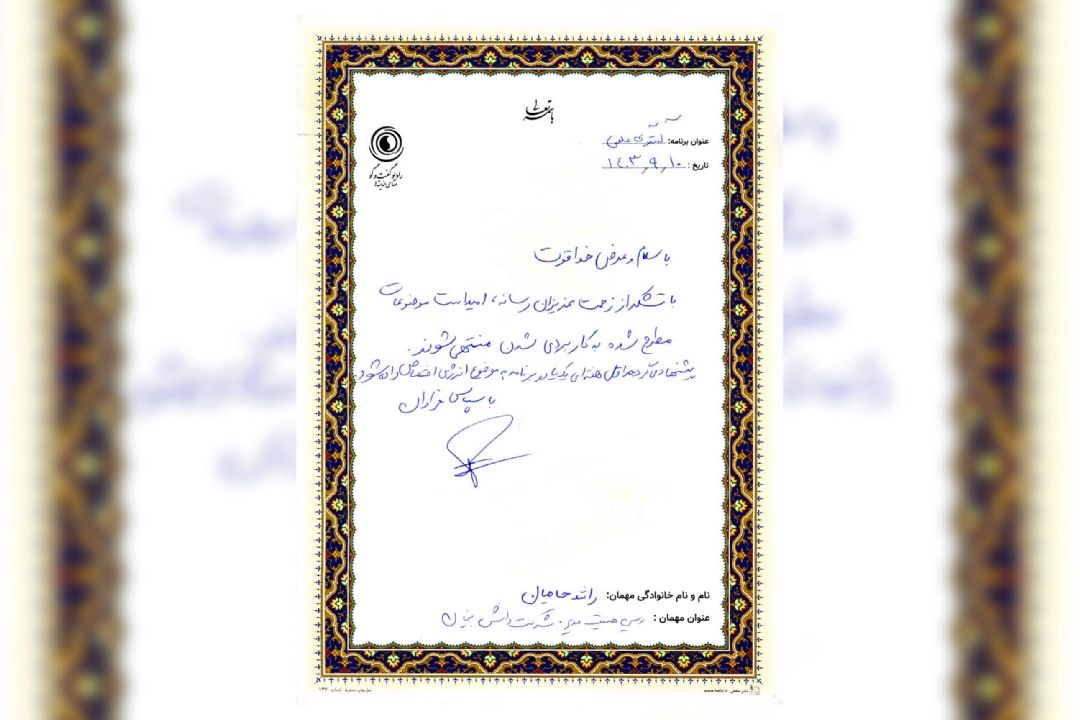 باسمه تعالی
عنوان برنامه: گفتگوی علمی
تاریخ: ۱۴۰۳,۹,۱۰
رادیو گفت و گو
با سلام و عرض خداقوت
با تشکر از زحمت عزیزان رسانه، امید است موضوعات
مطرح شده به کاربردی شدن منتهی شوند.
پیشنهاد می‌گردد حداقل هفته‌ای یک یا دو برنامه به موضوع انرژی اختصاص داده شود
با سپاس فراوان
نام و نام خانوادگی مهمان: راشد حامیان
عنوان مهمان: رییس هیئت مدیره شرکت دانش بنیان